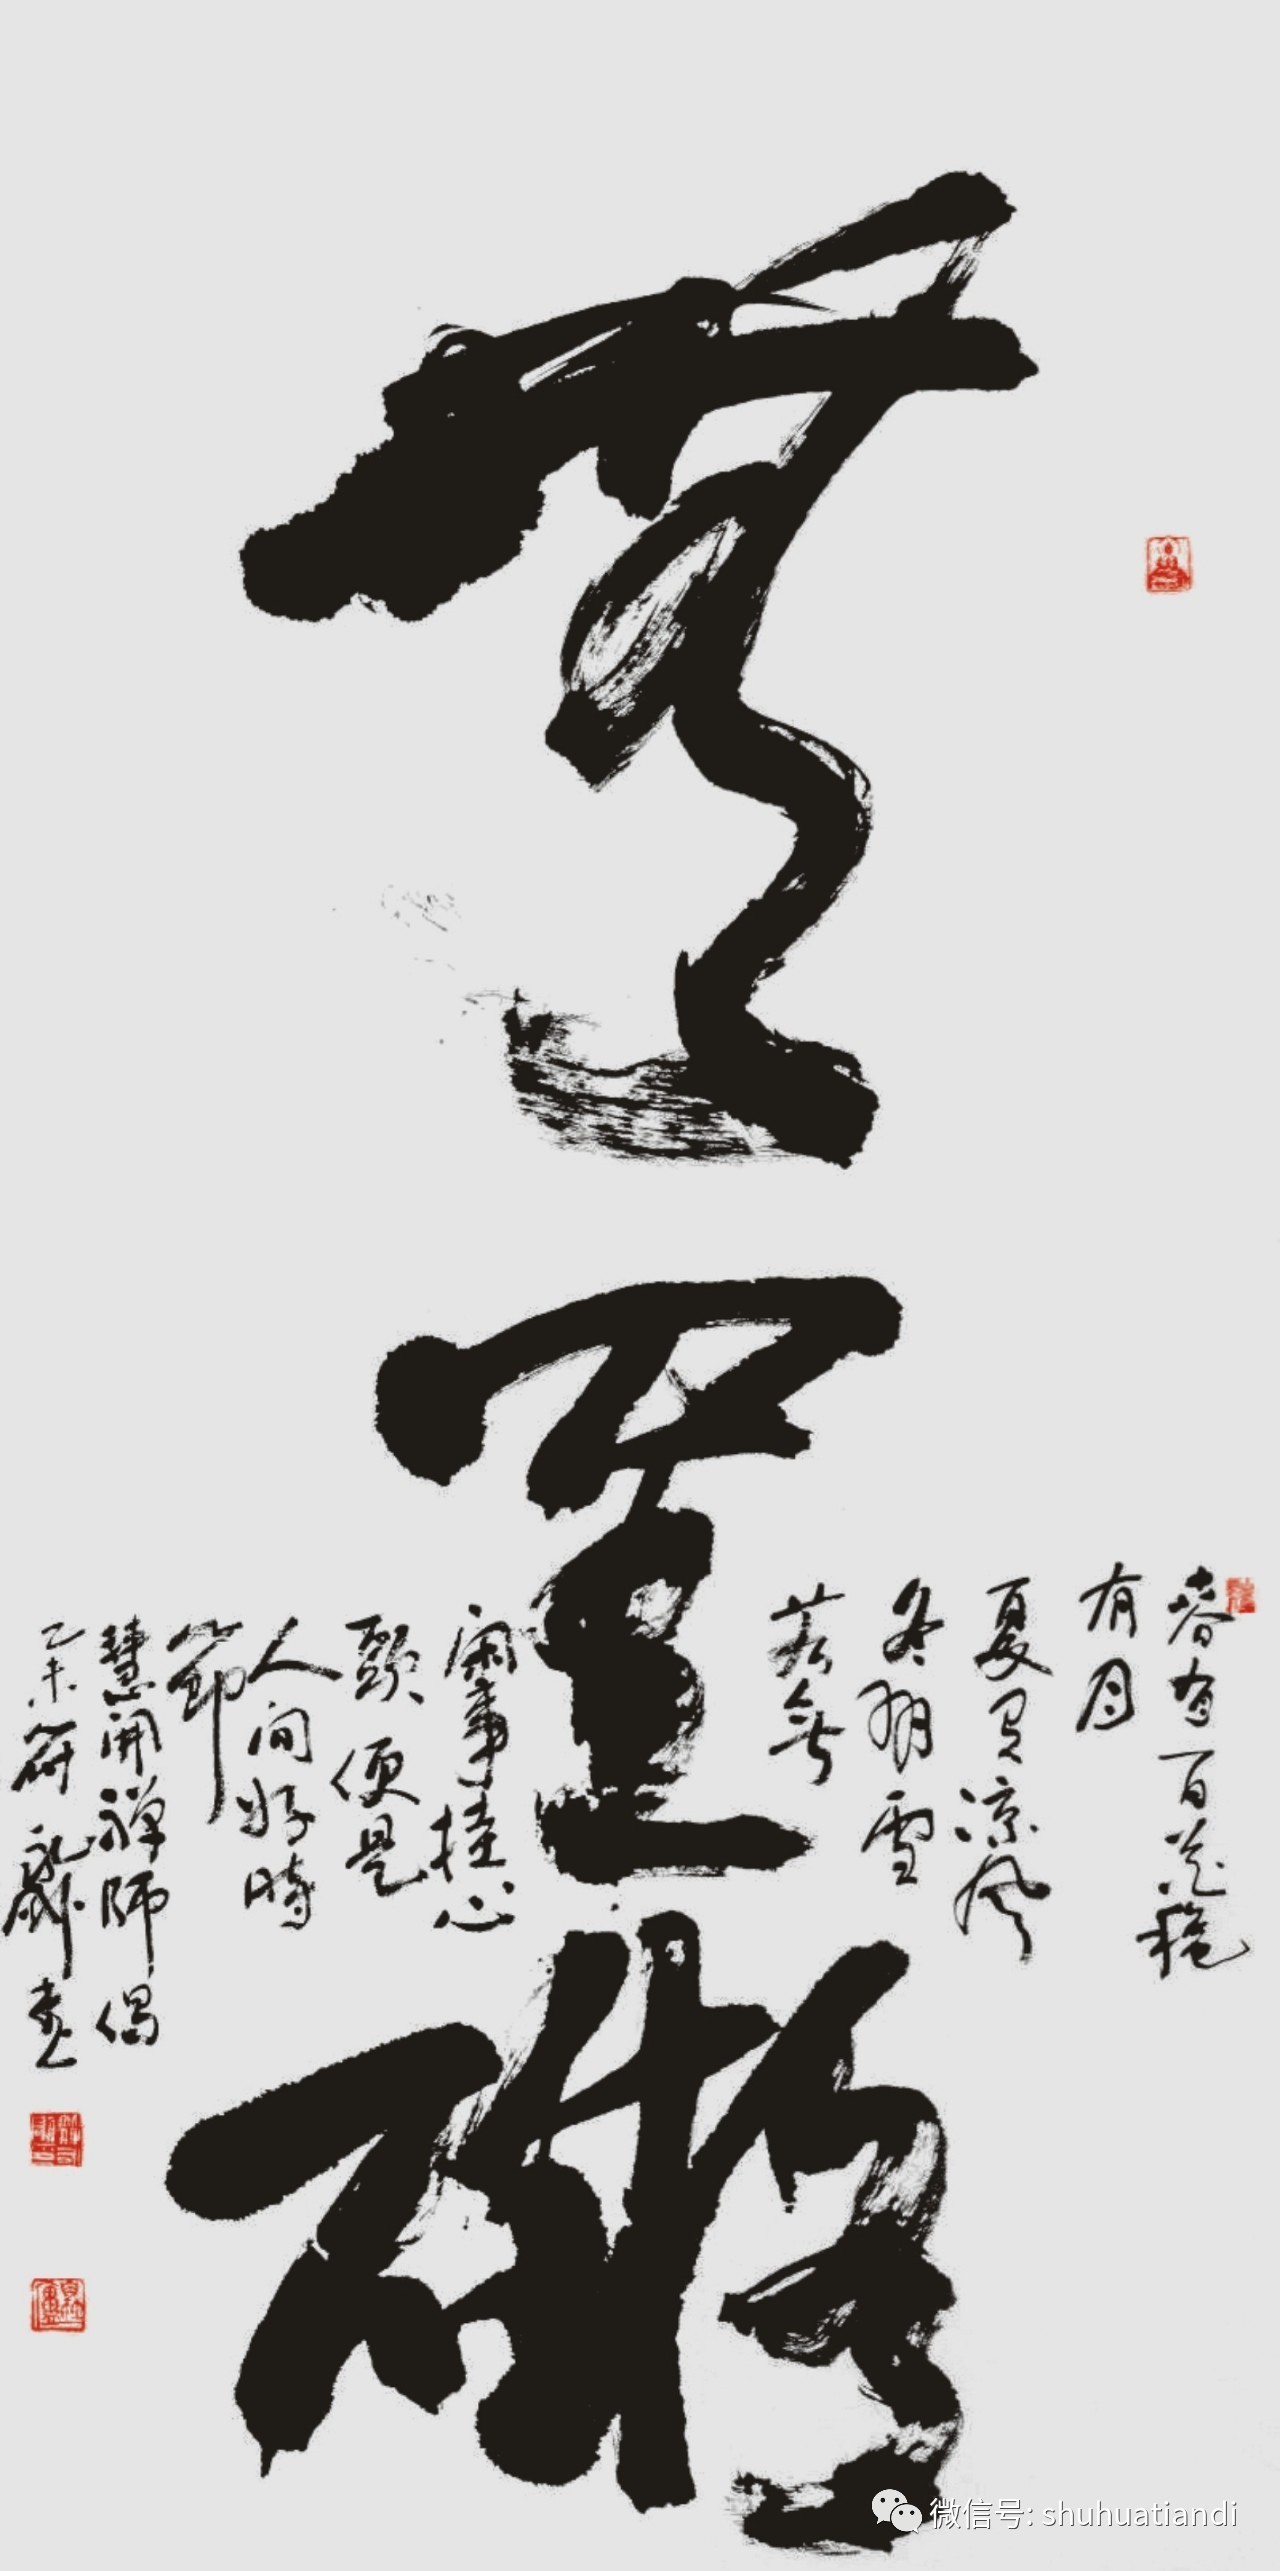 無罣礙
春有百花穐
有月
夏有凉风
冬有雪
若無
閑事挂心
頭便是
人间好時
節
慧開禅師偈
乙未
微信号: shuhuatiandi